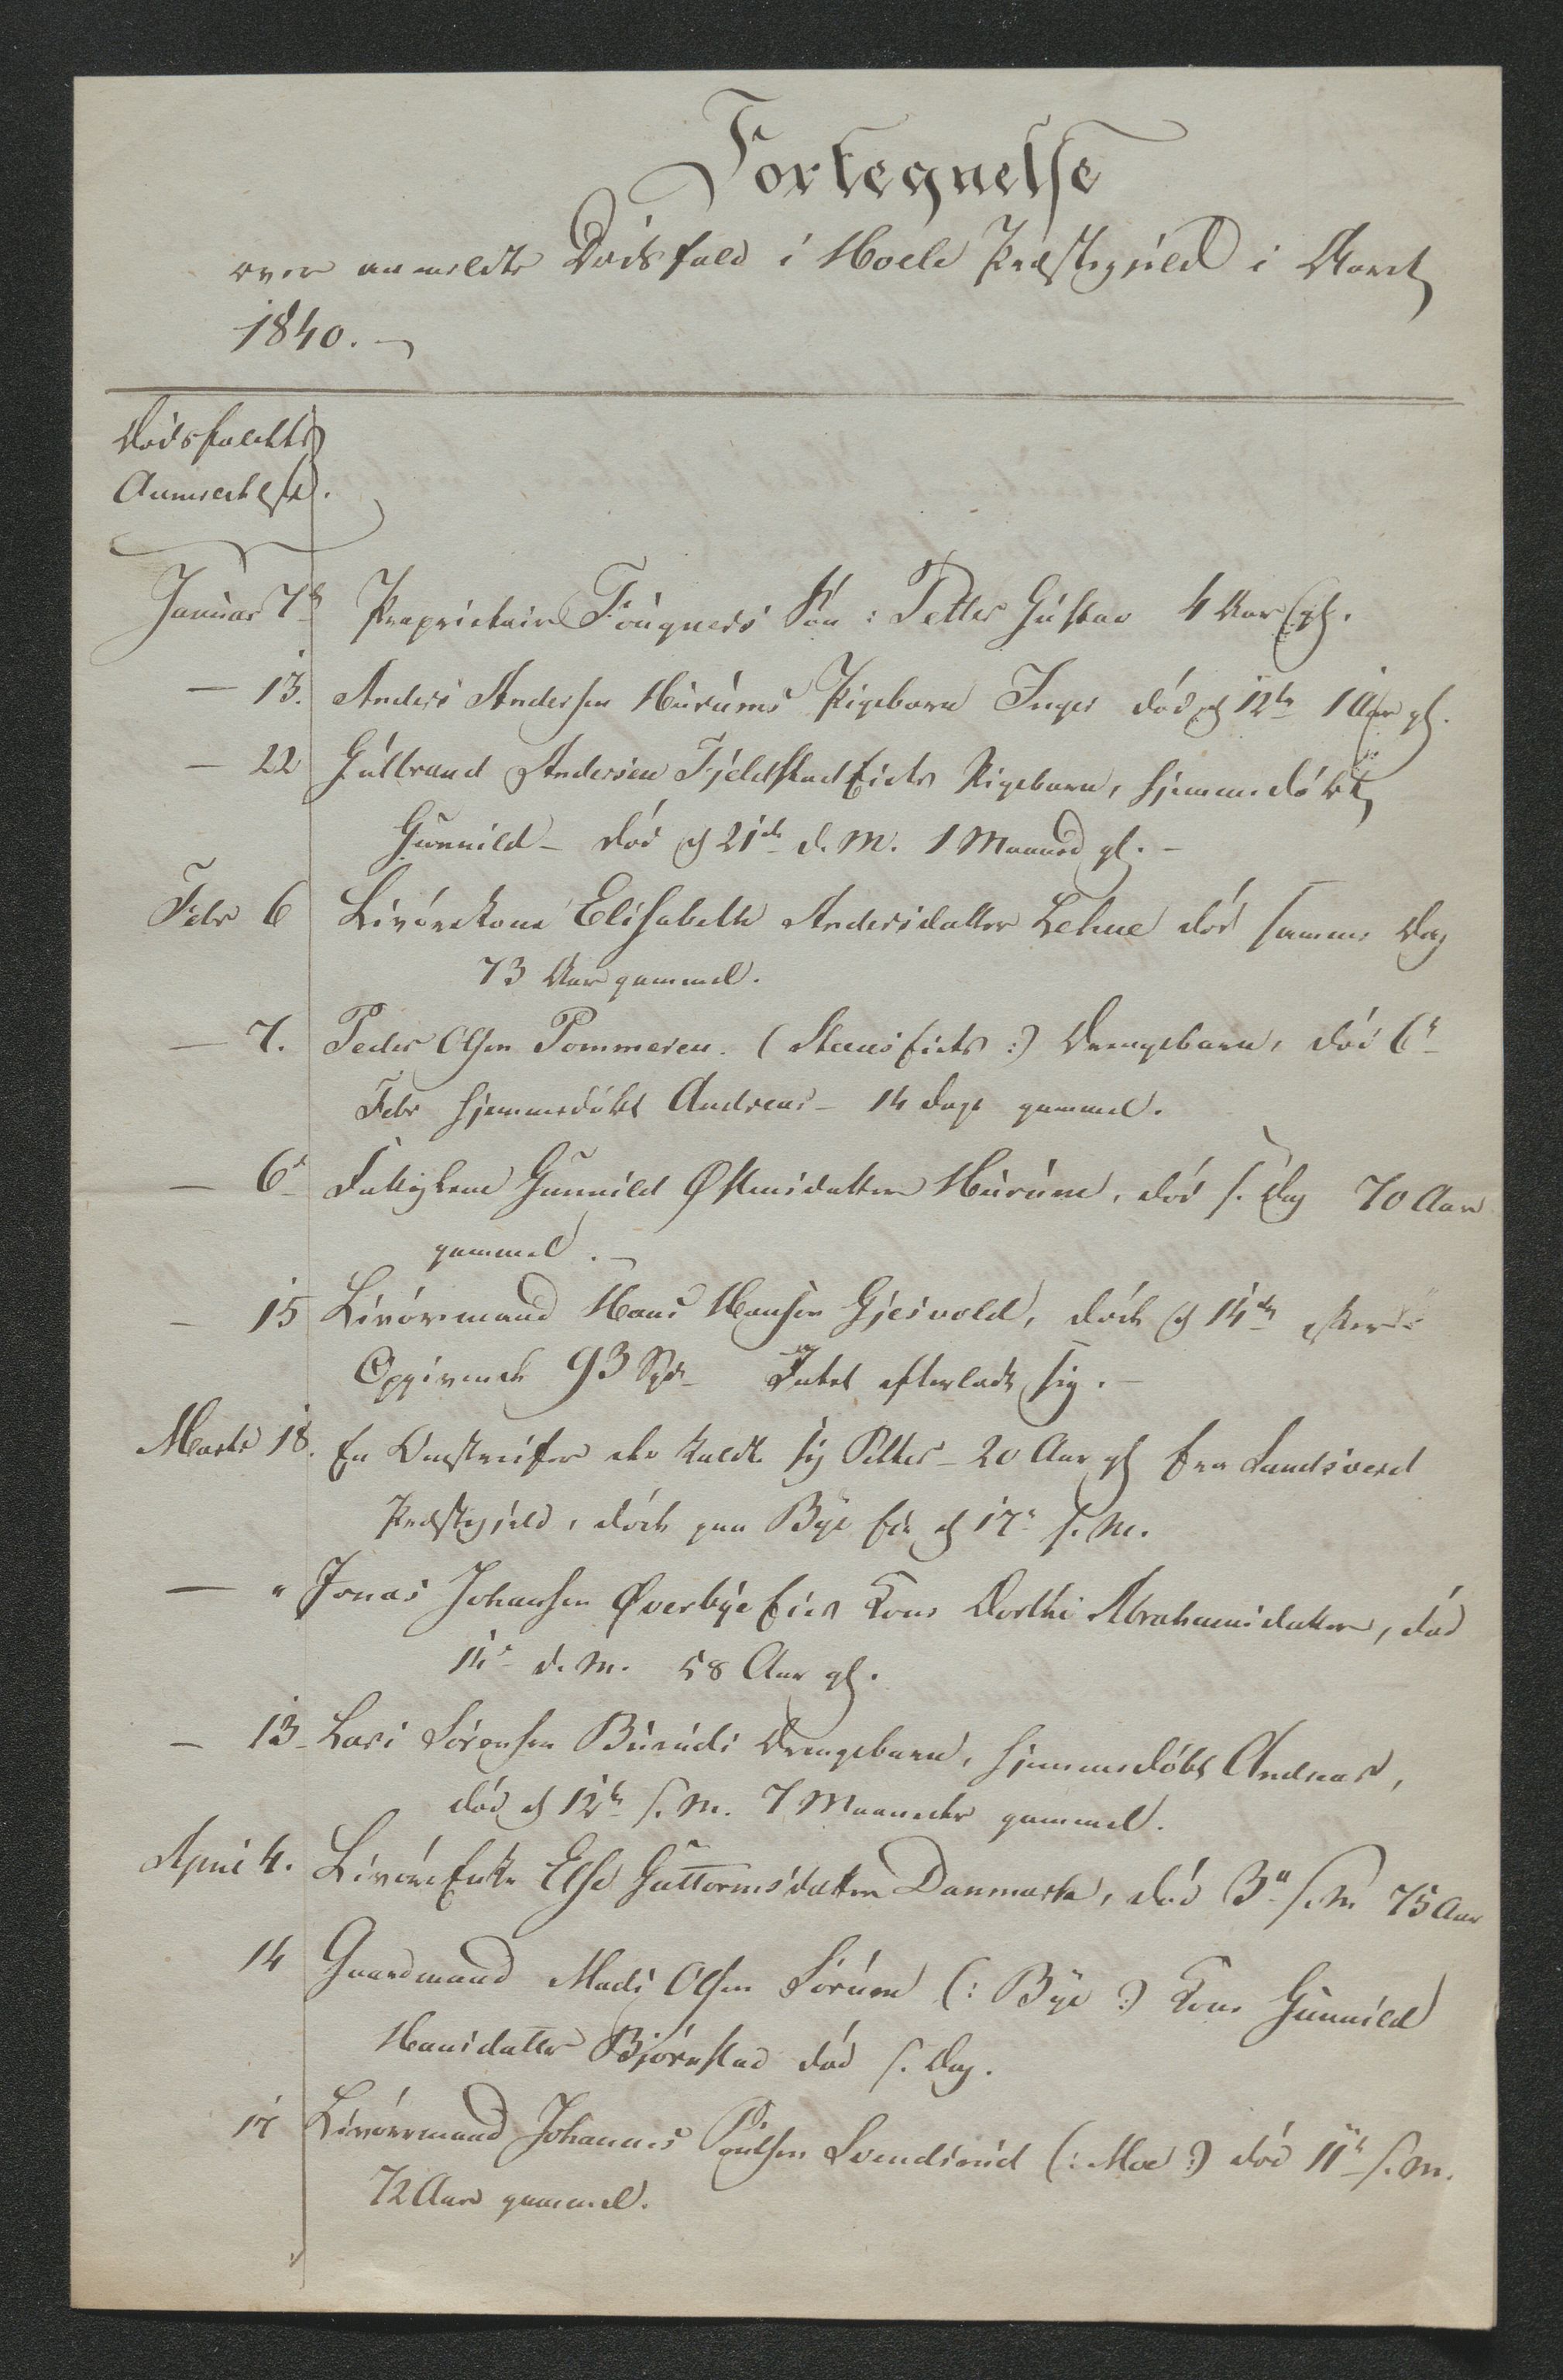 Fortegnelse
over anmeldte Dødsfald i Hole Præstegjeld i Aaret
1840. -
Dødsfaldets
Anmeldelse.
Januar 7de Proprietair Fougners Søn: Petter Gustav 4 Aar gl.
- 13. Anders Andersen Hurums Pigebarn Inger død d 12te 1 Aar gl.
- 22 Gulbrand Andersen Fjeldstad Eiets Pigebarn, hjemmedøbt
Gunnild - død d 21de d. M. 1 Maaned gl. -
Febr 6 Livørekone Elisabeth Andersdatter Lehne død samme Dag
73 Aar gammel.
- 7. Peder Olsen Pommeren. (Steens Eiets :) Drengebarn, død 6te
Febr hjemmedøbt Andreas - 14 dage gammel.
- 6te Fattiglem Gunnild Østensdatter Hurum, død s. Dag 70 Aar
gammel. -
- 15 Livørmand Hans Hansen Gjesvold, døde d 14de
Opgivende 93 Intet efterladt sig. -
Marts 18. En Omstreifer der kaldte sig Petter - 20 Aar gl fra Sandsverd
Præstegjeld, døde paa Bye Eie d 17de s. M.
- " Jonas Johansen Øverbye Eies Kone Dorthe Abrahamsdatter, død
14de d. M. 58 Aar gl.
- 13 Lars Sørensen Buruds Drengebarn, hjemmedøbt Andreas,
død d 12te s. M. 7 Maaneder gammel.
April 4. Livøre Enke Else Guttormsdatter Danmark, død 3de s. M 75 Aar
14 Gaardmand Mads Olsen Sørum (: Bye :) Kone Gunnild
Hansdatter Bjørnstad død s. Dag.
17 Livørmand Johannes Poulsen Svendsrud (: Moe :) død 11te s. M.
72 Aar gammel.